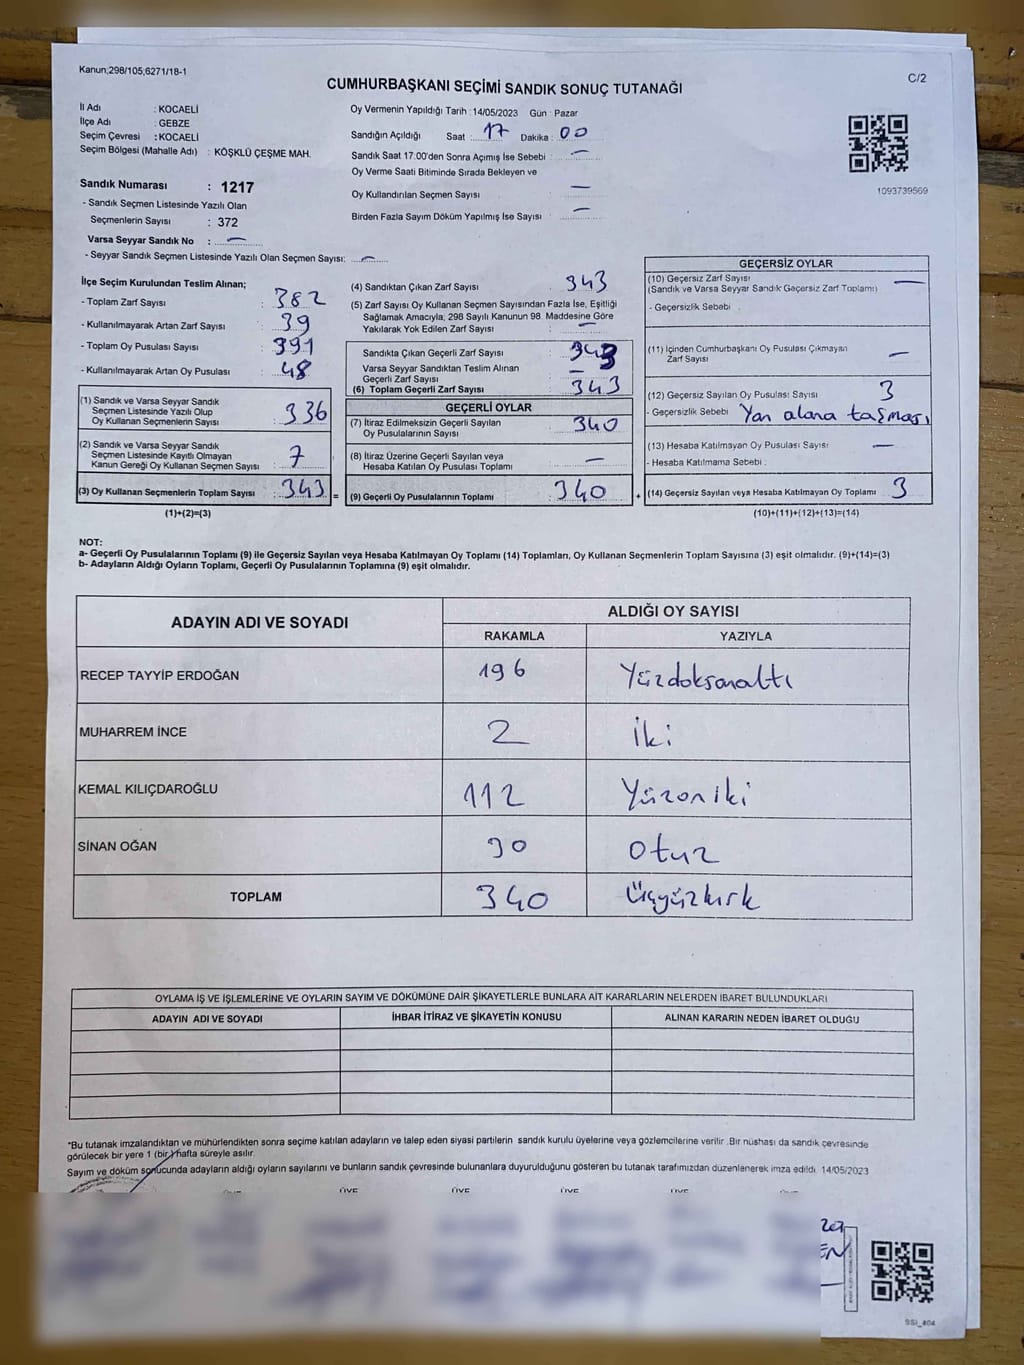 Kanun;298/105,6271/18-1
C/2
CUMHURBAŞKANI SEÇİMİ SANDIK SONUÇ TUTANAĞI
İl Adı : KOCAELİ
İlçe Adı : GEBZE
Seçim Çevresi : KOCAELİ
Seçim Bölgesi (Mahalle Adı) : KÖŞKLÜ ÇEŞME MAH.
Sandık Numarası : 1217
- Sandık Seçmen Listesinde Yazılı Olan
Seçmenlerin Sayısı : 372
Varsa Seyyar Sandık No : —
- Seyyar Sandık Seçmen Listesinde Yazılı Olan Seçmen Sayısı: —
Oy Vermenin Yapıldığı Tarih : 14/05/2023 Gün : Pazar
Sandığın Açıldığı Saat : 17 Dakika : 00
Sandık Saat 17:00'den Sonra Açımış İse Sebebi : —
Oy Verme Saati Bitiminde Sırada Bekleyen ve
Oy Kullandırılan Seçmen Sayısı : —
Birden Fazla Sayım Döküm Yapılmış İse Sayısı : —
1093739569
İlçe Seçim Kurulundan Teslim Alınan;
- Toplam Zarf Sayısı : 382
- Kullanılmayarak Artan Zarf Sayısı : 39
- Toplam Oy Pusulası Sayısı : 391
- Kullanılmayarak Artan Oy Pusulası : 48
(1) Sandık ve Varsa Seyyar Sandık
Seçmen Listesinde Yazılı Olup
Oy Kullanan Seçmenlerin Sayısı : 336
(2) Sandık ve Varsa Seyyar Sandık
Seçmen Listesinde Kayıtlı Olmayan
Kanun Gereği Oy Kullanan Seçmen Sayısı : 7
(3) Oy Kullanan Seçmenlerin Toplam Sayısı : 343 =
(1)+(2)=(3)
(4) Sandıktan Çıkan Zarf Sayısı : 343
(5) Zarf Sayısı Oy Kullanan Seçmen Sayısından Fazla İse, Eşitliği
Sağlamak Amacıyla; 298 Sayılı Kanunun 98. Maddesine Göre
Yakılarak Yok Edilen Zarf Sayısı : —
Sandıkta Çıkan Geçerli Zarf Sayısı : 343
Varsa Seyyar Sandıktan Teslim Alınan
Geçerli Zarf Sayısı : —
(6) Toplam Geçerli Zarf Sayısı : 343
GEÇERLİ OYLAR
(7) İtiraz Edilmeksizin Geçerli Sayılan
Oy Pusulalarının Sayısı : 340
(8) İtiraz Üzerine Geçerli Sayılan veya
Hesaba Katılan Oy Pusulası Toplamı : —
(9) Geçerli Oy Pusulalarının Toplamı : 340 +
GEÇERSİZ OYLAR
(10) Geçersiz Zarf Sayısı
(Sandık ve Varsa Seyyar Sandık Geçersiz Zarf Toplamı) —
- Geçersizlik Sebebi
(11) İçinden Cumhurbaşkanı Oy Pusulası Çıkmayan
Zarf Sayısı —
(12) Geçersiz Sayılan Oy Pusulası Sayısı 3
- Geçersizlik Sebebi Yan alana taşması
(13) Hesaba Katılmayan Oy Pusulası Sayısı —
- Hesaba Katılmama Sebebi :
(14) Geçersiz Sayılan veya Hesaba Katılmayan Oy Toplamı 3
(10)+(11)+(12)+(13)=(14)
NOT:
a- Geçerli Oy Pusulalarının Toplamı (9) ile Geçersiz Sayılan veya Hesaba Katılmayan Oy Toplamı (14) Toplamları, Oy Kullanan Seçmenlerin Toplam Sayısına (3) eşit olmalıdır. (9)+(14)=(3)
b- Adayların Aldığı Oyların Toplamı, Geçerli Oy Pusulalarının Toplamına (9) eşit olmalıdır.
ADAYIN ADI VE SOYADI
ALDIĞI OY SAYISI
RAKAMLA YAZIYLA
RECEP TAYYİP ERDOĞAN 196 Yüzdoksanaltı
MUHARREM İNCE 2 İki
KEMAL KILIÇDAROĞLU 112 Yüzoniki
SİNAN OĞAN 30 Otuz
TOPLAM 340 Üçyüzkırk
OYLAMA İŞ VE İŞLEMLERİNE VE OYLARIN SAYIM VE DÖKÜMÜNE DAİR ŞİKAYETLERLE BUNLARA AİT KARARLARIN NELERDEN İBARET BULUNDUKLARI
ADAYIN ADI VE SOYADI İHBAR İTİRAZ VE ŞİKAYETİN KONUSU ALINAN KARARIN NEDEN İBARET OLDUĞU
*Bu tutanak imzalandıktan ve mühürlendikten sonra seçime katılan adayların ve talep eden siyasi partilerin sandık kurulu üyelerine veya gözlemcilerine verilir. Bir nüshası da sandık çevresinde
görülecek bir yere 1 (bir) hafta süreyle asılır.
Sayım ve döküm sonucunda adayların aldığı oyların sayılarını ve bunların sandık çevresinde bulunanlara duyurulduğunu gösteren bu tutanak tarafımızdan düzenlenerek imza edildi. 14/05/2023
ÜYE ÜYE ÜYE ÜYE ÜYE
SSİ_404